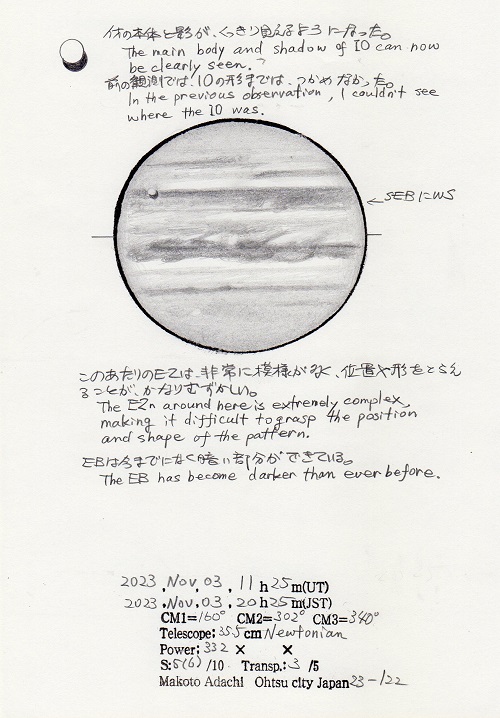 イオの本体と影が、くっきり見えるようになった。
The main body and shadow of IO can now
be clearly seen.
前の観測では、IOの形までは、つかめなかった。
In the previous observation, I couldn't see
where the IO was.
←SEBにWS
このあたりのEZは、非常に模様が多く、位置や形をとらえ
ることが、かなりむずかしい。
The EZn around here is extremely complex,
making it difficult to grasp the position
and shape of the pattern.
EBは今までになく暗い部分ができている。
The EB has become darker than ever before.
2023,Nov,03, 11h25m(UT)
2023,Nov,03, 20h25m(JST)
CM1=160° CM2=302° CM3=340°
Telescope; 35.5cm Newtonian
Power; 332 × ×
S:5(6)/10 Transp.;3 /5
Makoto Adachi Ohtsu city Japan 23-122